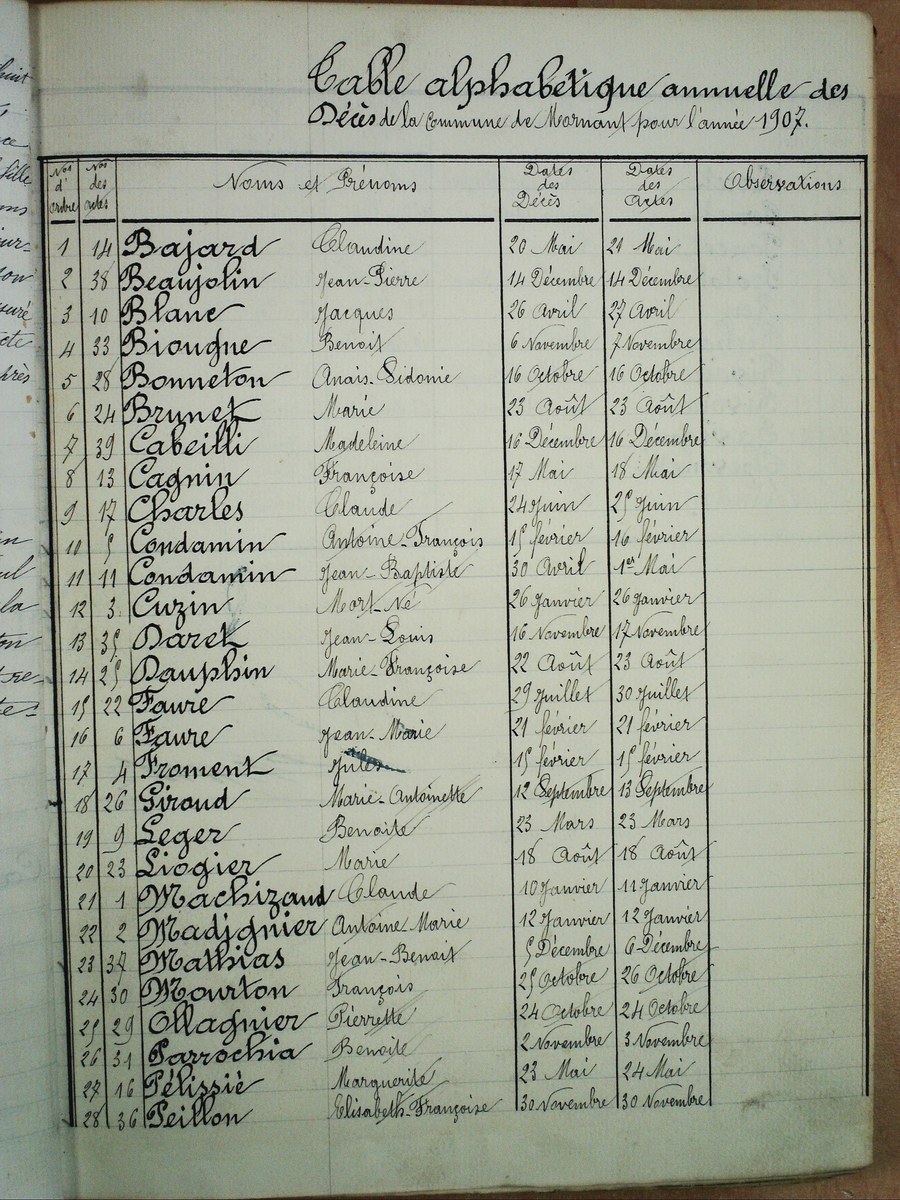 Table alphabétique annuelle des
Décès de la Commune de Mornant pour l'année 1907.
Nos d'ordre Nos des actes Noms et Prénoms Dates des Décès Dates des Actes Observations
1 14 Bajard Claudine 20 Mai 21 Mai
2 38 Beaujolin Jean-Pierre 14 Décembre 14 Décembre
3 10 Blanc Jacques 26 Avril 27 Avril
4 33 Biougne Benoit 6 Novembre 7 Novembre
5 28 Bonneton Anais-Sidonie 16 Octobre 16 Octobre
6 24 Brunet Marie 23 Août 23 Août
7 39 Cabeilli Madeleine 16 Décembre 16 Décembre
8 13 Cagnin Françoise 17 Mai 18 Mai
9 17 Charles Claude 24 Juin 25 Juin
10 5 Condamin Antoine-François 15 février 16 février
11 11 Condamin Jean-Baptiste 30 Avril 1er Mai
12 3 Cuzin Mort-Né 26 Janvier 26 Janvier
13 35 Daret Jean-Louis 16 Novembre 17 Novembre
14 25 Dauphin Marie-Françoise 22 Août 23 Août
15 22 Faure Claudine 29 Juillet 30 Juillet
16 6 Faure Jean-Marie 21 février 21 février
17 4 Froment Jules 15 février 15 février
18 26 Giroud Marie-Antoinette 12 Septembre 13 Septembre
19 9 Leger Benoite 23 Mars 23 Mars
20 23 Liogier Marie 18 Août 18 Août
21 1 Machizaud Claude 10 Janvier 11 Janvier
22 2 Madignier Antoine-Marie 12 Janvier 12 Janvier
23 37 Mathias Jean-Benoit 5 Décembre 6 Décembre
24 30 Mourton François 25 Octobre 26 Octobre
25 29 Ollagnier Pierrette 24 Octobre 24 Octobre
26 31 Parrochia Benoite 2 Novembre 3 Novembre
27 16 Pélissié Marguerite 23 Mai 24 Mai
28 36 Peillon Elisabeth-Françoise 30 Novembre 30 Novembre